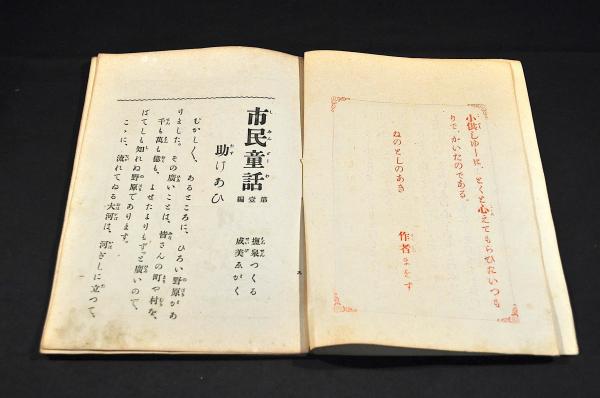 小供しゆーは、とくと心えてもらひたいつも
りで、かいたのである。
ねのとしのあき
作者まをす
市民童話
第壹編
助けあひ
塩泉つくる
成美ゑがく
むかし〱、あるところに、ひろい野原があ
りました。その廣いことは、皆さんの町や村を、
千も萬も億も、よせたよりもずつと廣いので、
はてしも知れぬ野原であります。
こゝに、流れてゐる大河は、河ぎしに立つて、